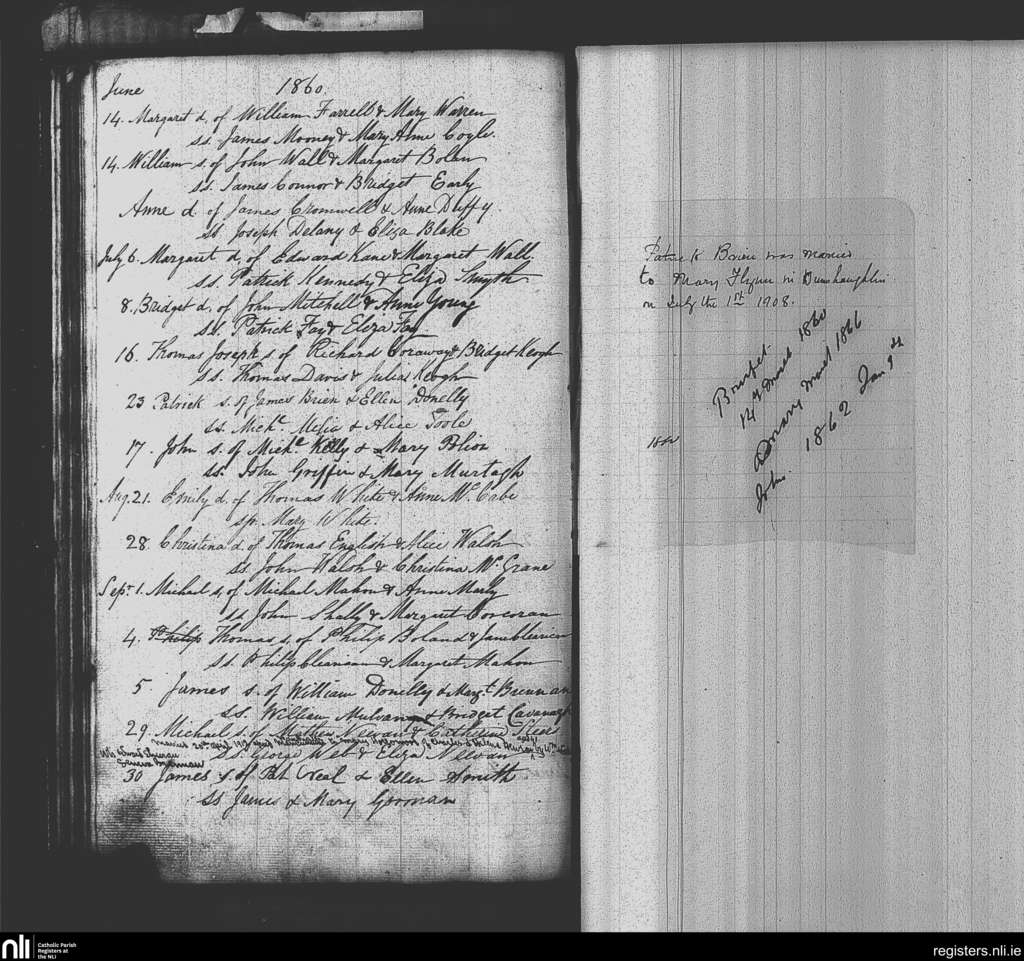 June 1860.
14. Margaret d. of William Farrell & Mary Warren
ss. James Mooney & Mary Anne Coyle.
14. William s. of John Wall & Margaret Bolan
ss. James Connor & Bridget Early
Anne d. of James Cromwell & Anne Duffy.
ss Joseph Delany & Eliza Blake
July 6. Margaret d. of Edward Kane & Margaret Wall.
ss. Patrick Kennedy & Eliza Smyth
8. Bridget d. of John Mitchell & Anne Young
ss. Patrick Fay & Eliza Fay
16. Thomas Joseph s. of Richard & Bridget Keogh
ss. Thomas Davis & Julia Keogh
23 Patrick s. of James Brien & Ellen Donelly
ss. Michl. Melia & Alice Toole
17. John s. of Michl. Kelly & Mary
ss. John Griffin & Mary Murtagh
Aug. 21. Emily d. of Thomas White & Anne Mc.Cabe
sp. Mary White.
28. Christina d. of Thomas English & Alice Walsh
ss. John Walsh & Christina Mc.Grane
Sept. 1. Michael s. of Michael Mahon & Anne Marly
ss John Shally & Margaret Corcoran
4. Philip Thomas s. of Philip Boland & Jane
ss. Philip & Margaret Mahon
5. James s. of William Donelly & Margt. Brennan
ss. William & Bridget Cavanagh
29. Michael s. of & Catherine
married 20th April
ss. George & Eliza
30 James s. of Pat Neal & Ellen Smith
ss James & Mary Gorman
Patrick Brien was married
to Mary Flynn in Dunshaughlin
on July the 1st 1908.
1860
1866
John 1862 Jan
nli
Catholic Parish
Registers at
the NLI
registers.nli.ie